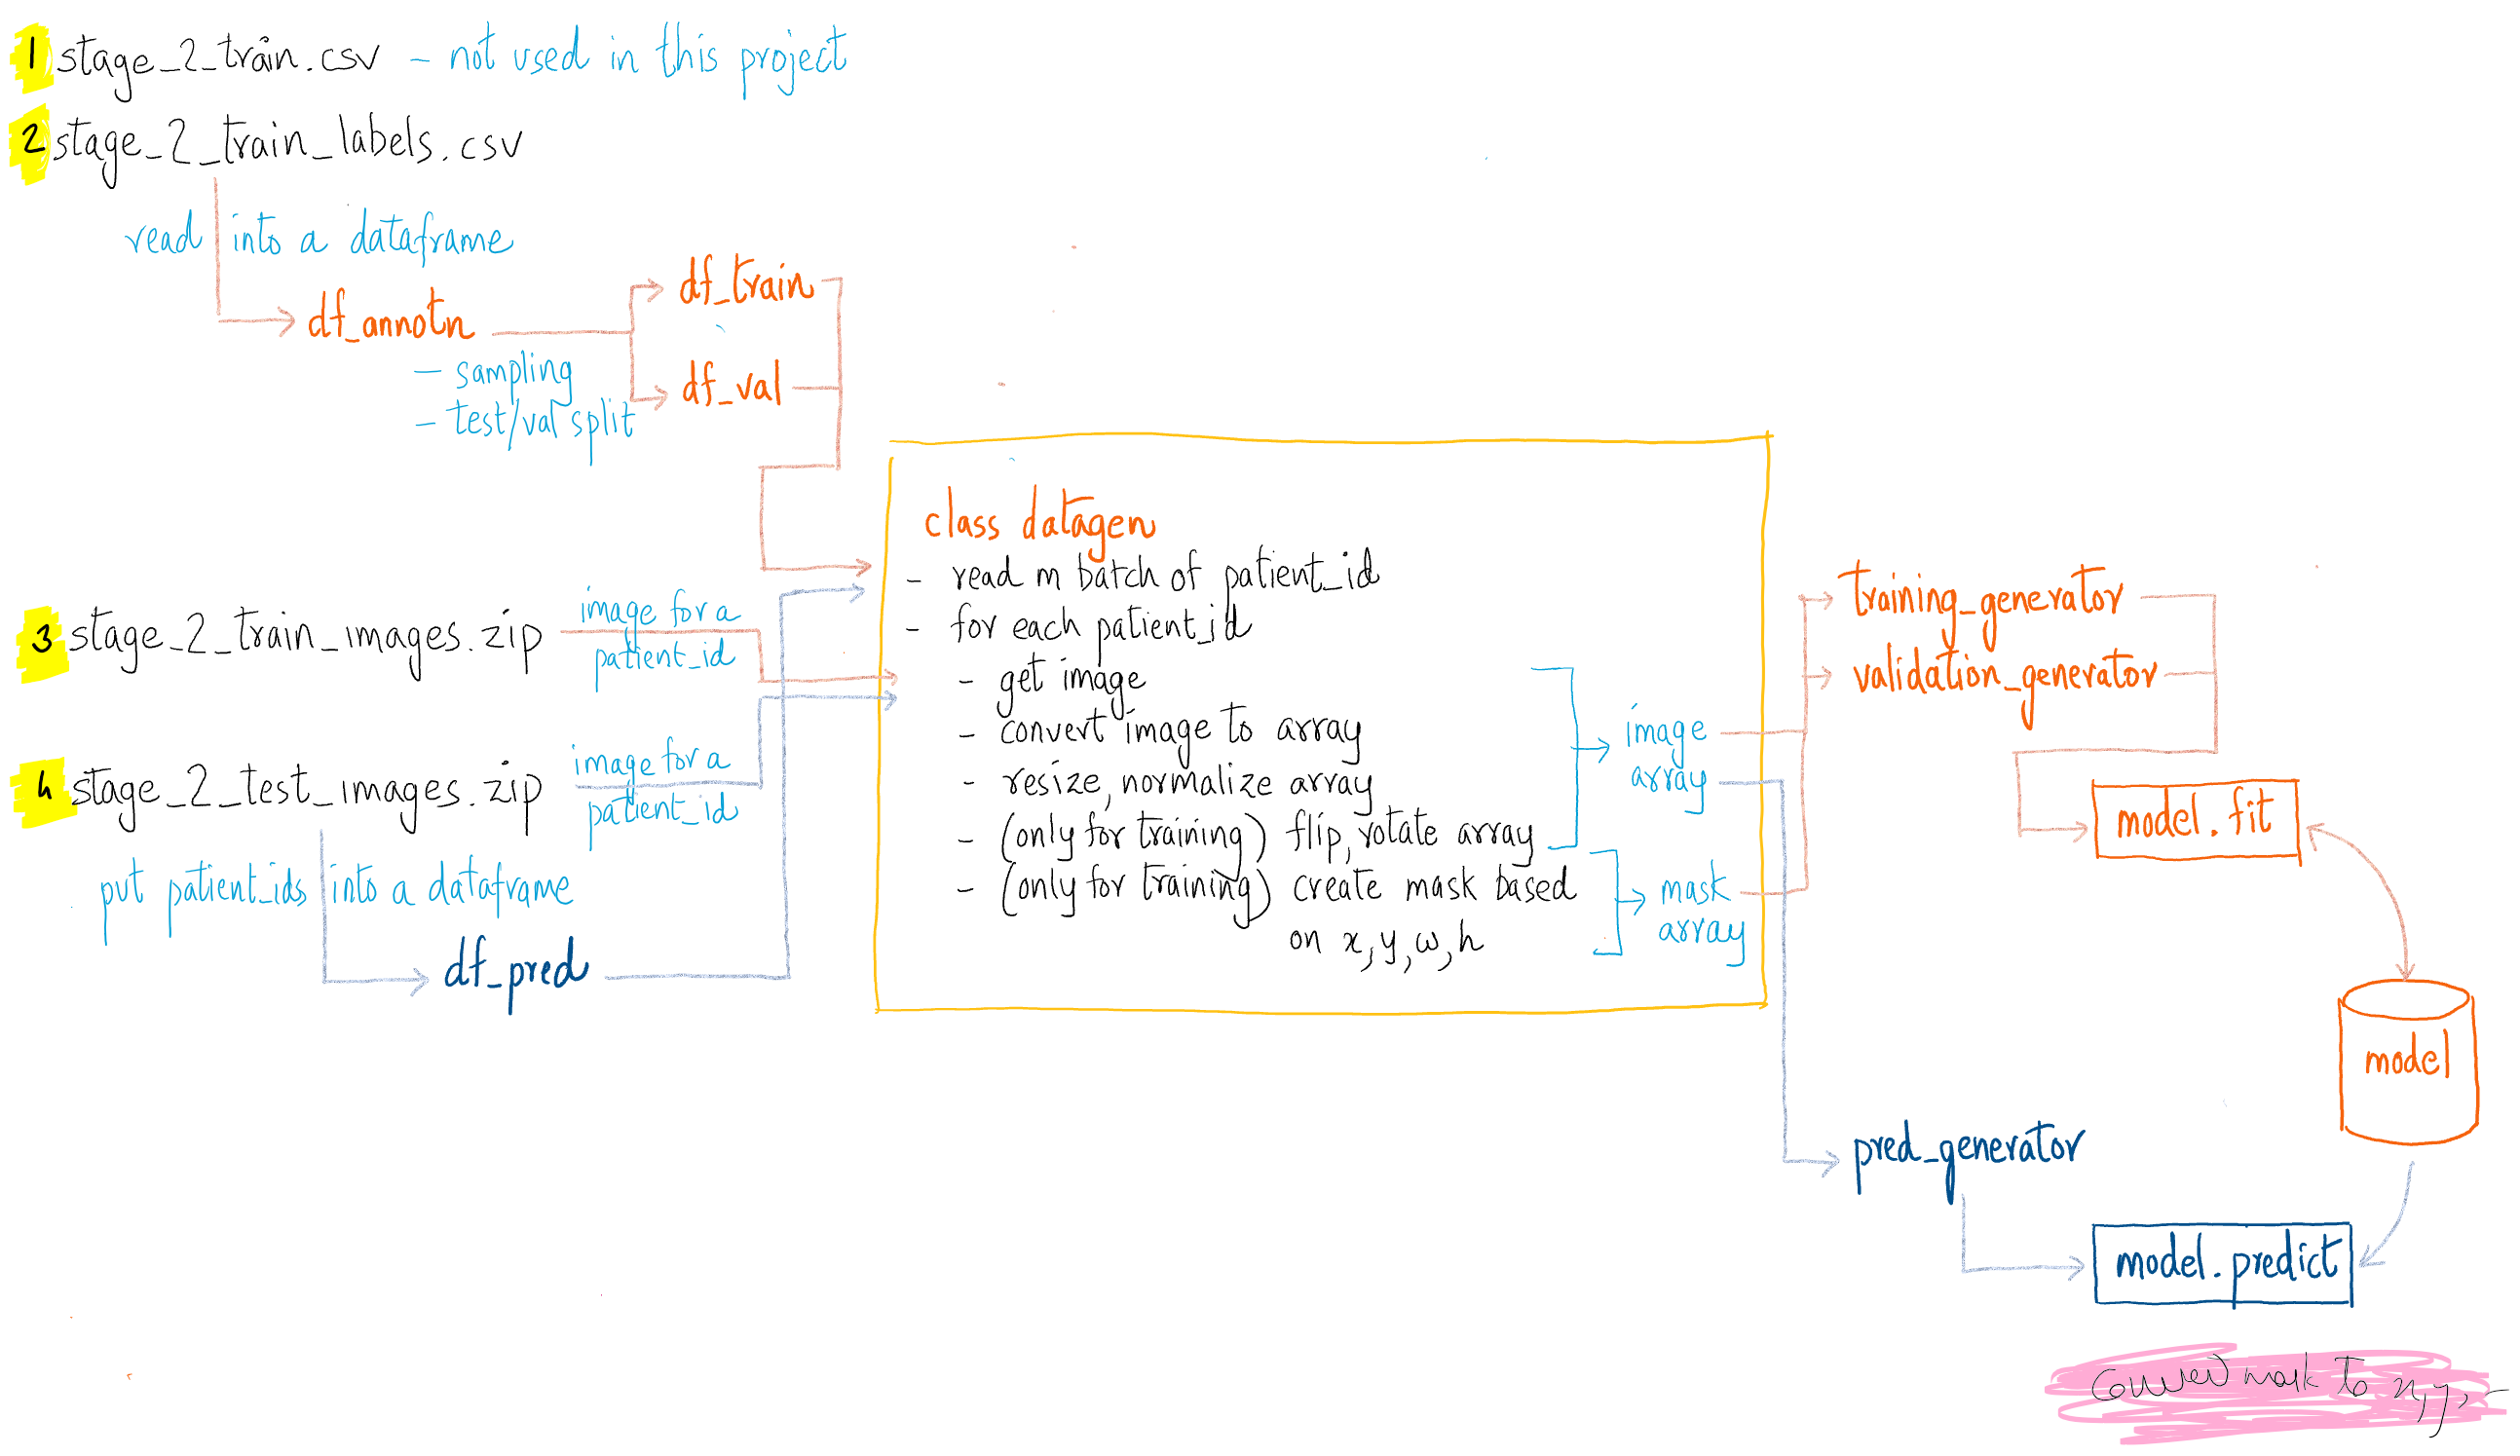 1 stage_2_train.csv - not used in this project
2 stage_2_train_labels.csv
read into a dataframe
df_annotn
- sampling
- test/val split
df_train
df_val
3 stage_2_train_images.zip
image for a
patient_id
4 stage_2_test_images.zip
image for a
patient_id
put patient_ids into a dataframe
df_pred
class datagen
- read m batch of patient_id
- for each patient_id
- get image
- convert image to array
- resize, normalize array
- (only for training) flip, rotate array
- (only for training) create mask based
on x, y, w, h
image
array
mask
array
training_generator
validation_generator
model.fit
model
pred_generator
model.predict
mask to x, y, -